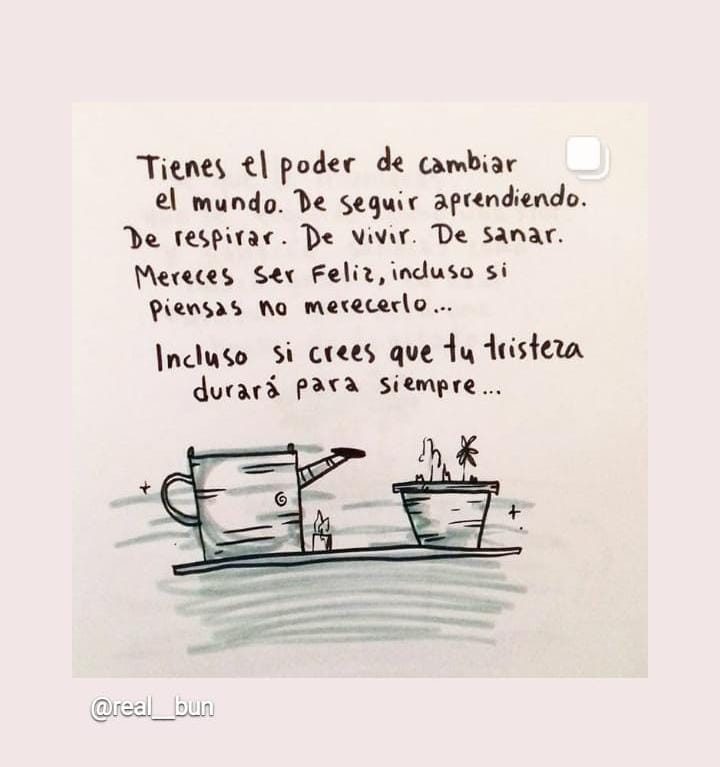 Tienes el poder de cambiar
el mundo. De seguir aprendiendo.
De respirar. De vivir. De sanar.
Mereces ser Feliz, incluso si
piensas no merecerlo...
Incluso si crees que tu tristeza
durará para siempre...
@real__bun